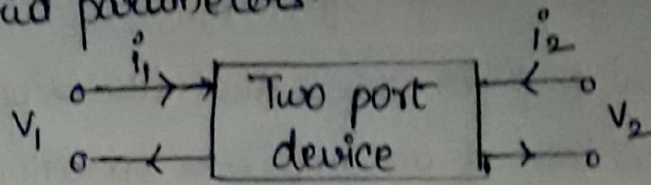 i₁
i₂
V₁
Two port
device
V₂